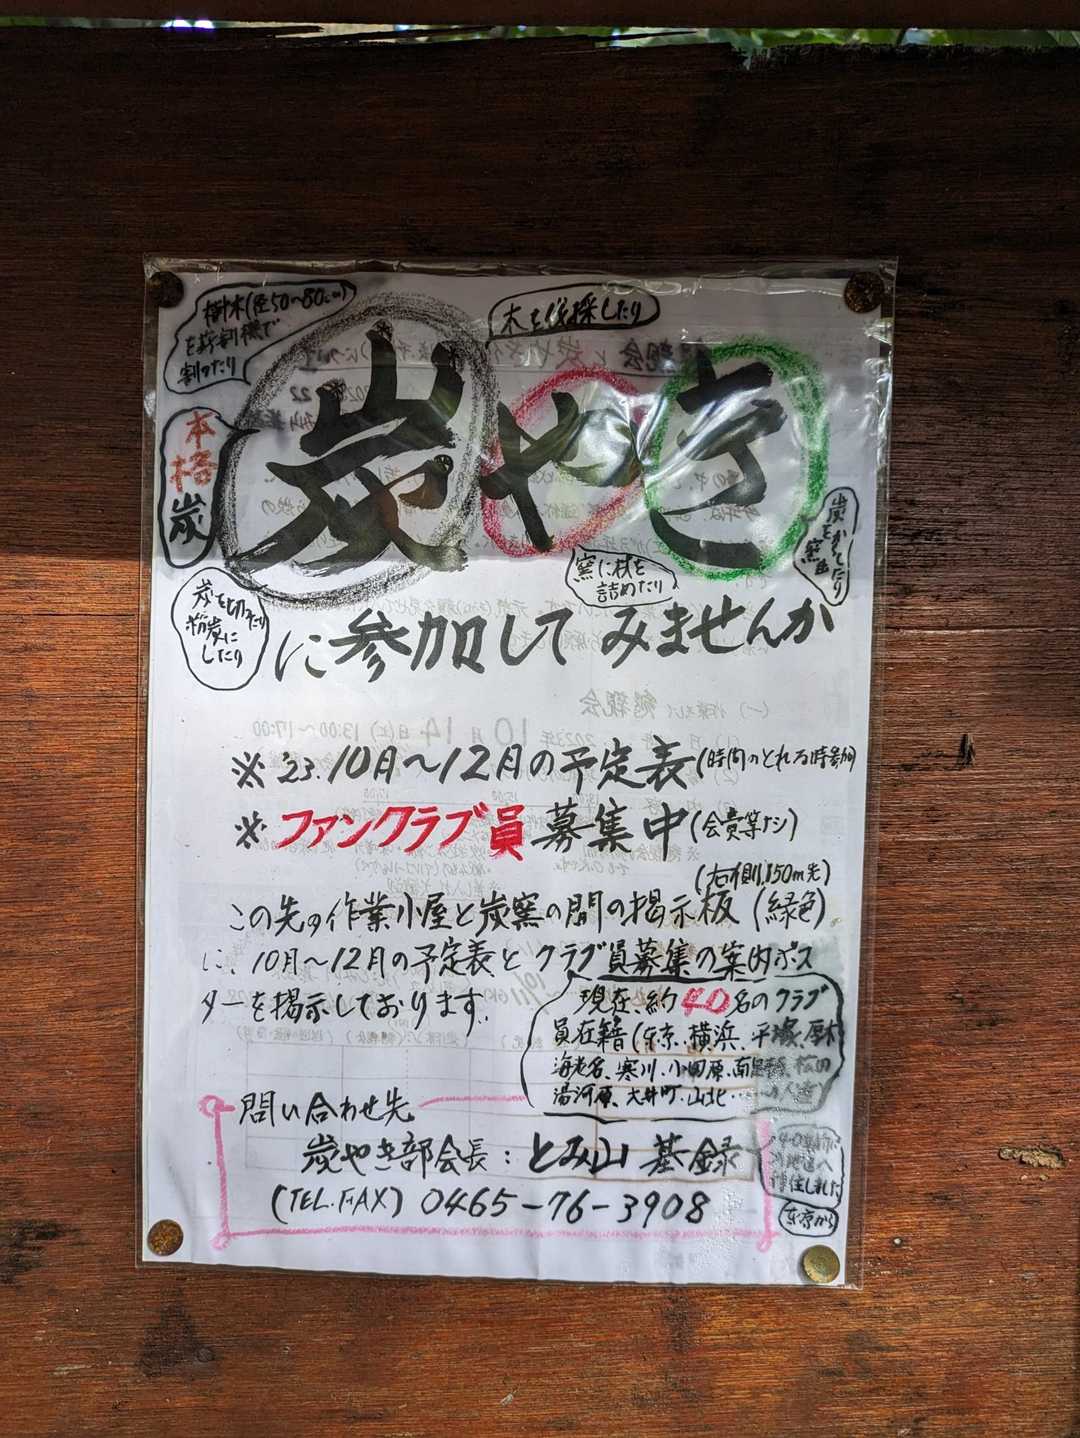 樹木(径50〜80cm)
を薪割機で
割ったり
木を伐採したり
本格炭
炭やき
炭を
窯出
かしたり
窯に材を
詰めたり
炭を切ったり
粉炭に
したり
に参加してみませんか
※'23.10月〜12月の予定表(時間のとれる時参加)
※ファンクラブ員募集中(会費等ナシ)
(右側150m先)
この先の作業小屋と炭窯の間の掲示板(緑色)
に、10月〜12月の予定表とクラブ員募集の案内ポス
ターを掲示しております。
現在、約40名のクラブ
員在籍(東京、横浜、平塚、厚木
海老名、寒川、小田原、南足柄、松田
湯河原、大井町、山北……の人達)
問い合わせ先
炭やき部会長：とみ山 基録
(TEL.FAX) 0465-76-3908
移住しました
東京から